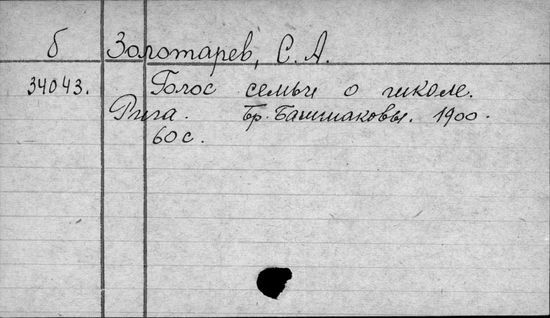 б Золотарев, С. А.
34043. Голос семьи о школе.
Рига. Бр. Башмаковы. 1900.
60 с.